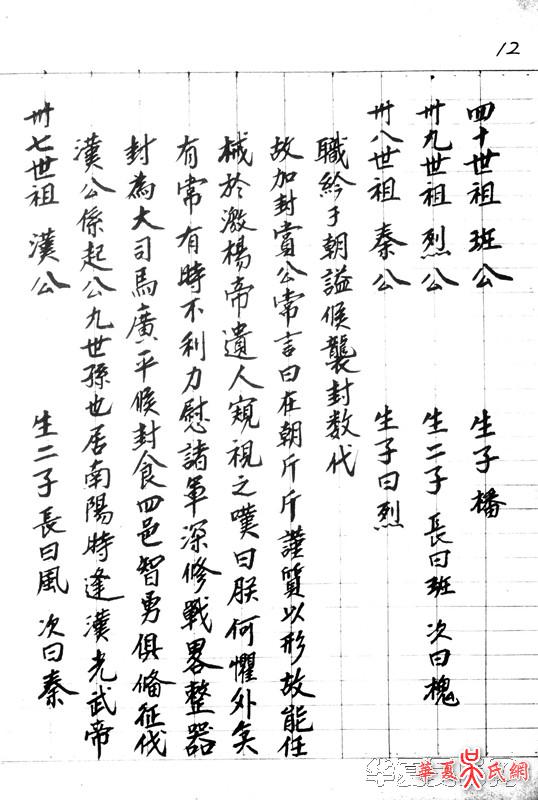 12
卅七世祖 漢公 生二子 長曰風 次曰秦
漢公係起公九世孫也居南陽時逢漢光武帝
封為大司馬廣平候封食四邑智勇俱俻征伐
有常有時不利力慰諸軍深修戰畧整器
械於激楊帝遺人窺視之嘆曰朕何懼外矣
故加封賞公常言曰在朝斤斤謹質以形故能任
職于朝謚候襲封数代
卅八世祖 秦公 生子曰烈
卅九世祖 烈公 生二子 長曰班 次曰槐
四十世祖 班公 生子橎
華夏吴氏網